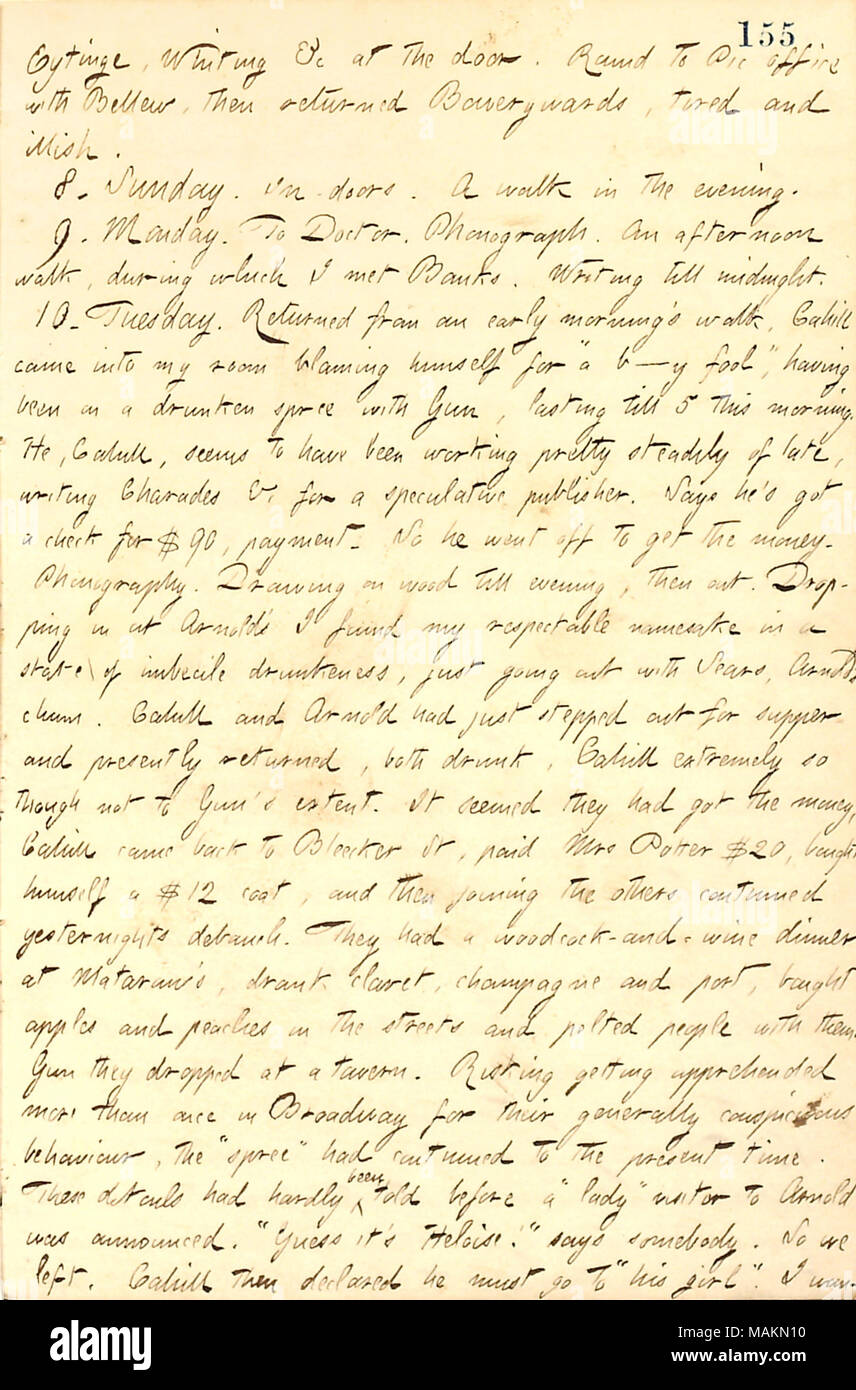 155
Eytinge, Whiting &c at the door. Round to Pic office
with Bellew, then returned Bowerywards, tired and
illish.
8. Sunday. In-doors. A walk in the evening.
9. Monday. To Doctor. Phonograph. An afternoon
walk, during which I met Banks. Writing till midnight.
10. Tuesday. Returned from an early morning's walk, Cahill
came into my room blaming himself for "a b—y fool", having
been on a drunken spree with Gun, lasting till 5 this morning.
He, Cahill, seems to have been working pretty steadily of late,
writing Charades &c for a speculative publisher. Says he's got
a check for $90, payment. So he went off to get the money.
Phonography. Drawing on wood till evening, then out. Drop-
ping in at Arnold's I found my respectable namesake in a
state of imbecile drunkeness, just going out with Sears, Arnold's
chum. Cahill and Arnold had just stepped out for supper
and presently returned, both drunk, Cahill extremely so
though not to Gun's extent. It seemed they had got the money,
Cahill came back to Bleecker St, paid Mrs Potter $20, bought
himself a $12 coat, and then joining the others continued
yesternights debauch. They had a woodcock-and-wine dinner
at Mataran's, drank claret, champagne and port, bought
apples and peaches in the streets and pelted people with them.
Gun they dropped at a tavern. Risking getting apprehended
more than once in Broadway for their generally conspicuous
behaviour, the "spree" had continued to the present time.
These details had hardly been told before a "lady" visitor to Arnold
was announced. "Guess it's Heloise!" says somebody. So we
left. Cahill then declared he must go to "his girl". I
alamy
Image ID: MAKN10
www.alamy.com